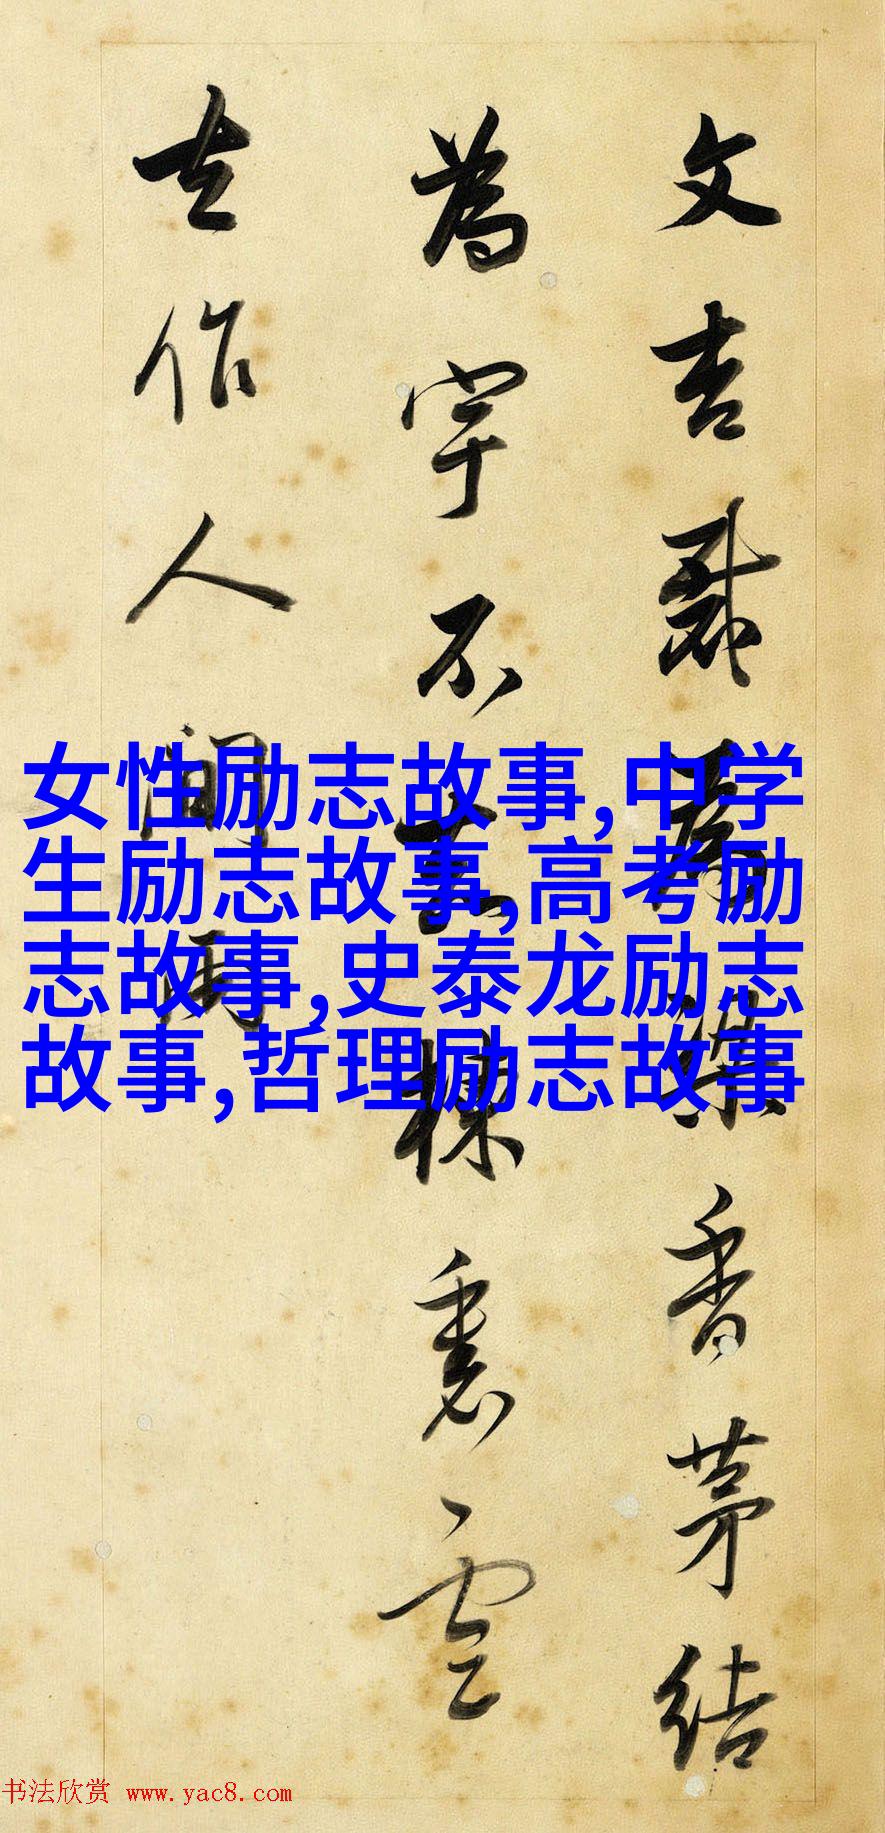 文杏裁為梁香茅結
為宇不知棟裏雲
去作人間雨
女性励志故事,中学
生励志故事,高考励
志故事,史泰龙励志
故事,哲理励志故事
书法欣赏 www.yac8.com